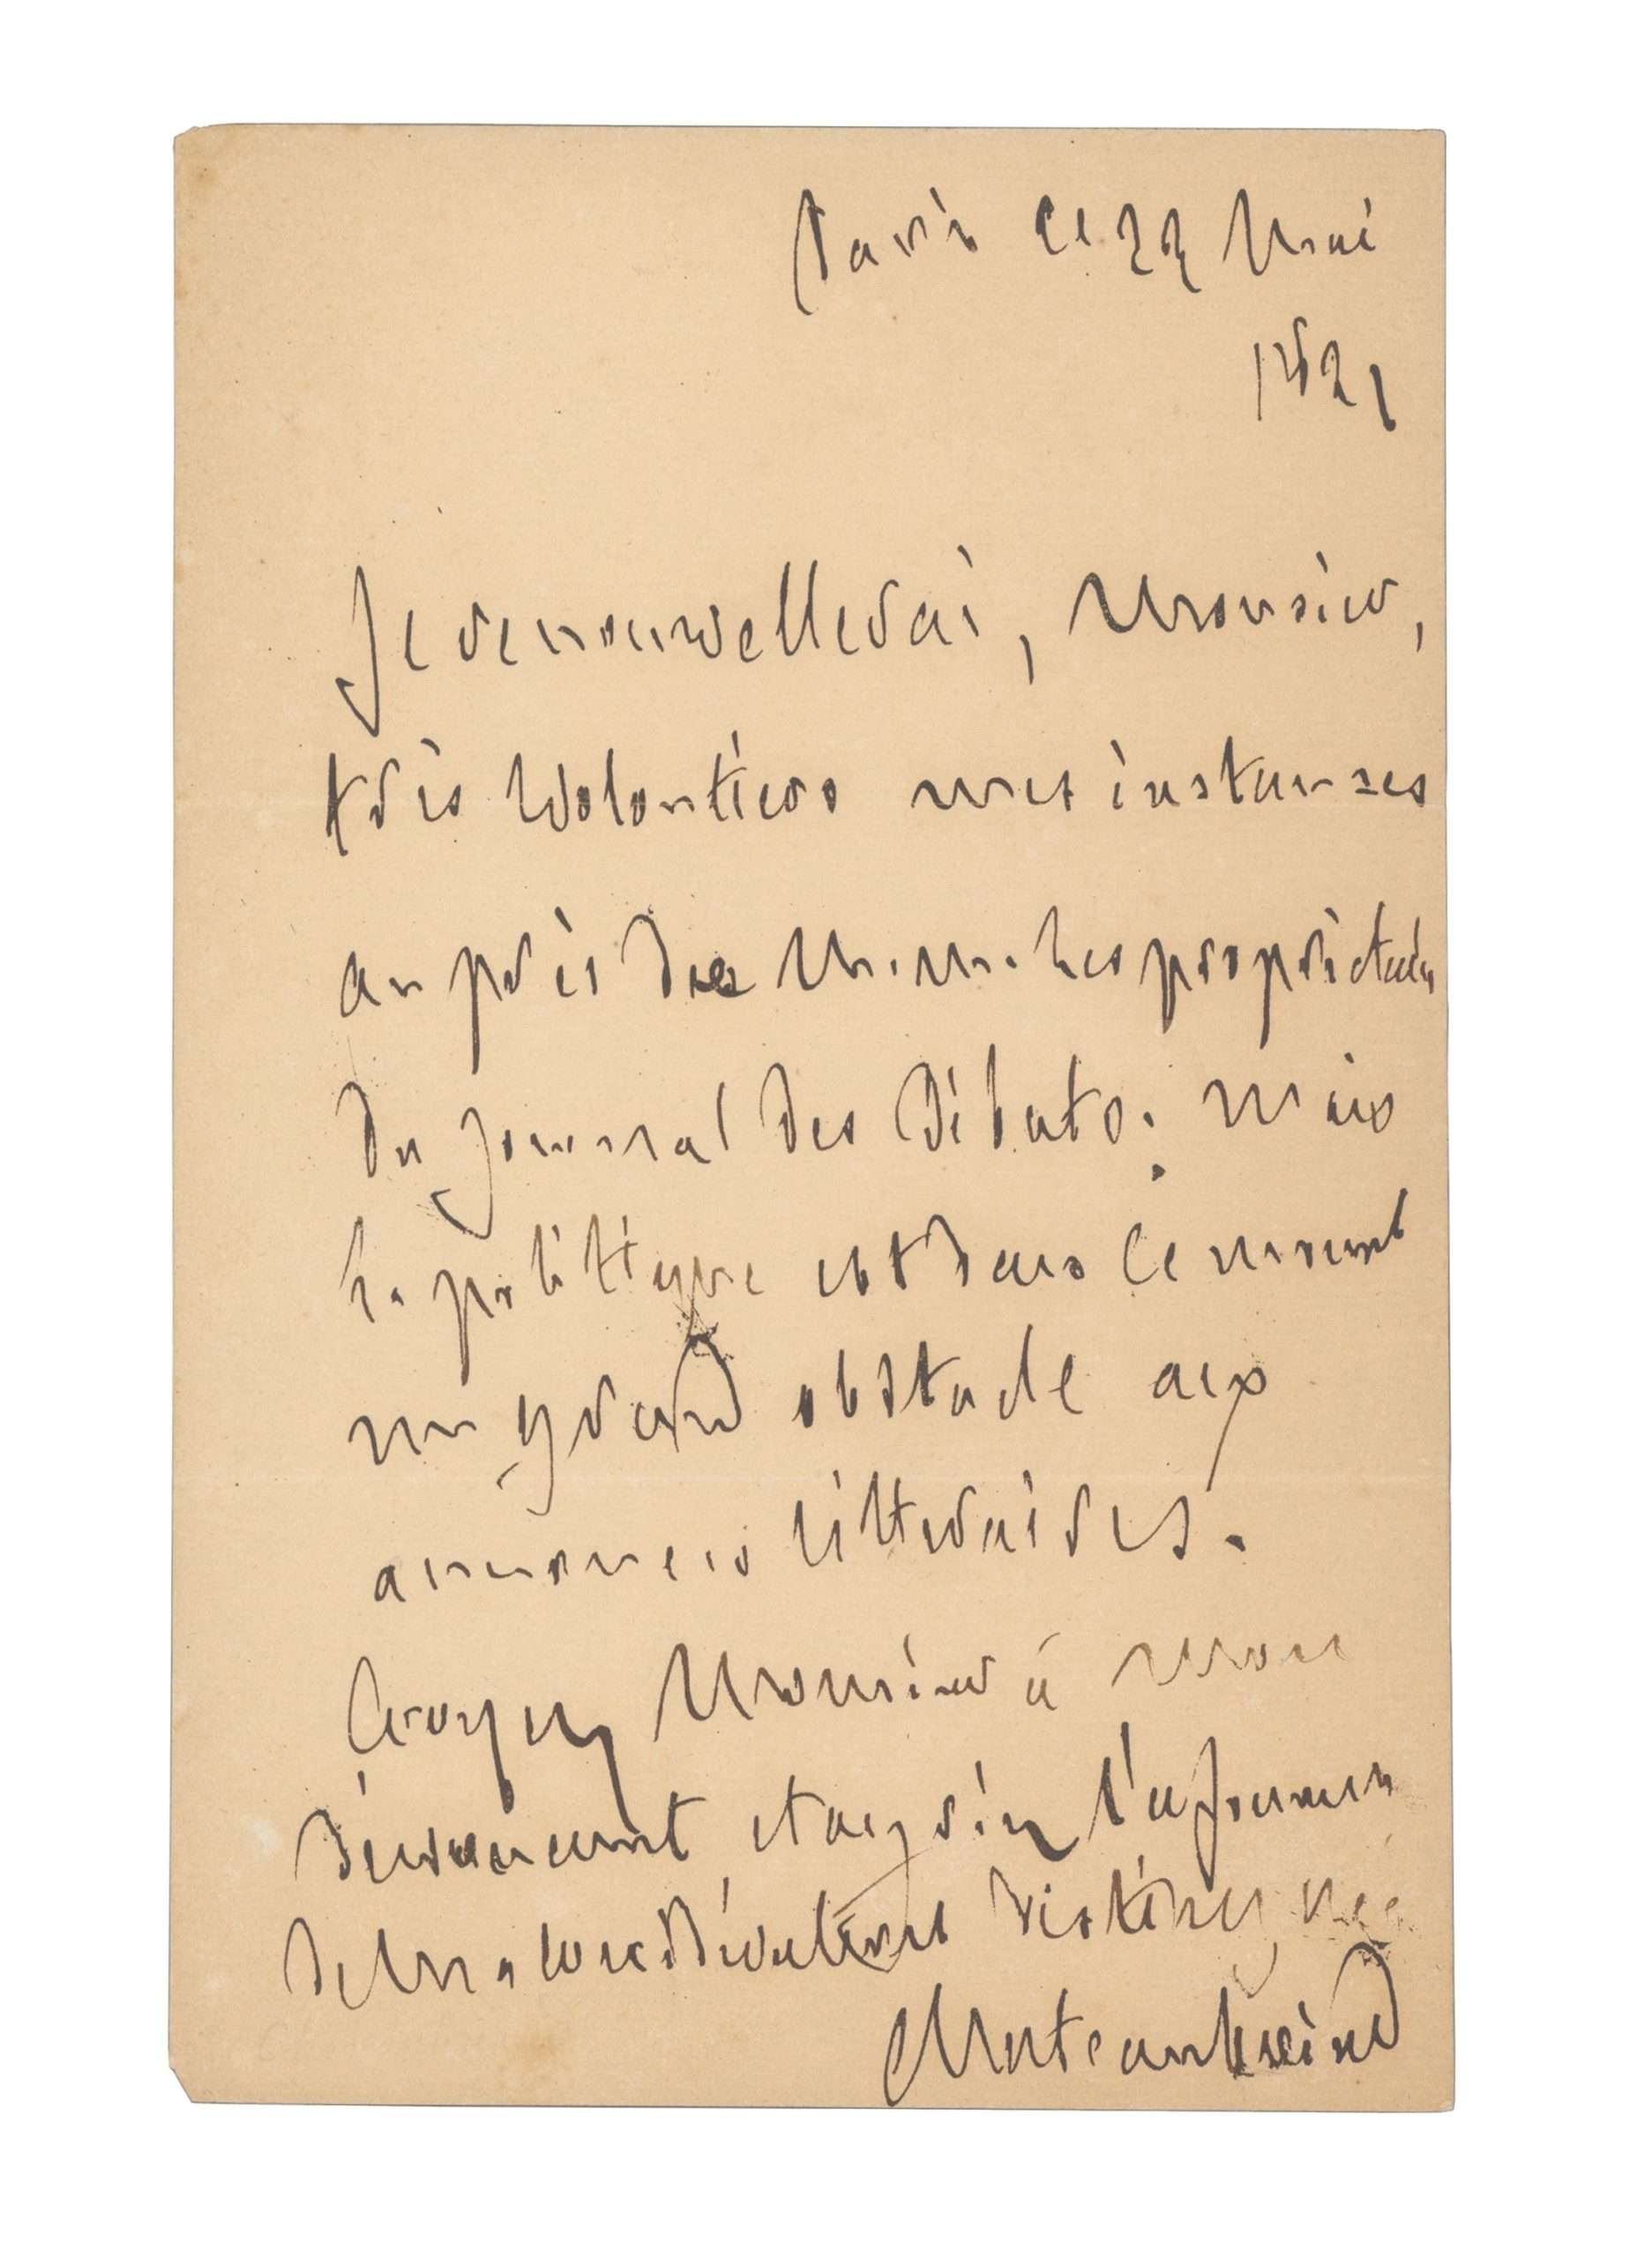 Paris ce 22 Mai
1821
Je renouvellerai, Monsieur,
très volontiers mes instances
auprès de M.M. les propriétaires
du Journal des Débats; mais
la politique est dans ce moment
un grand obstacle aux
annonces littéraires.
Croyez Monsieur à mon
dévouement et agréez l'assurance
de ma considération distinguée
Chateaubriand